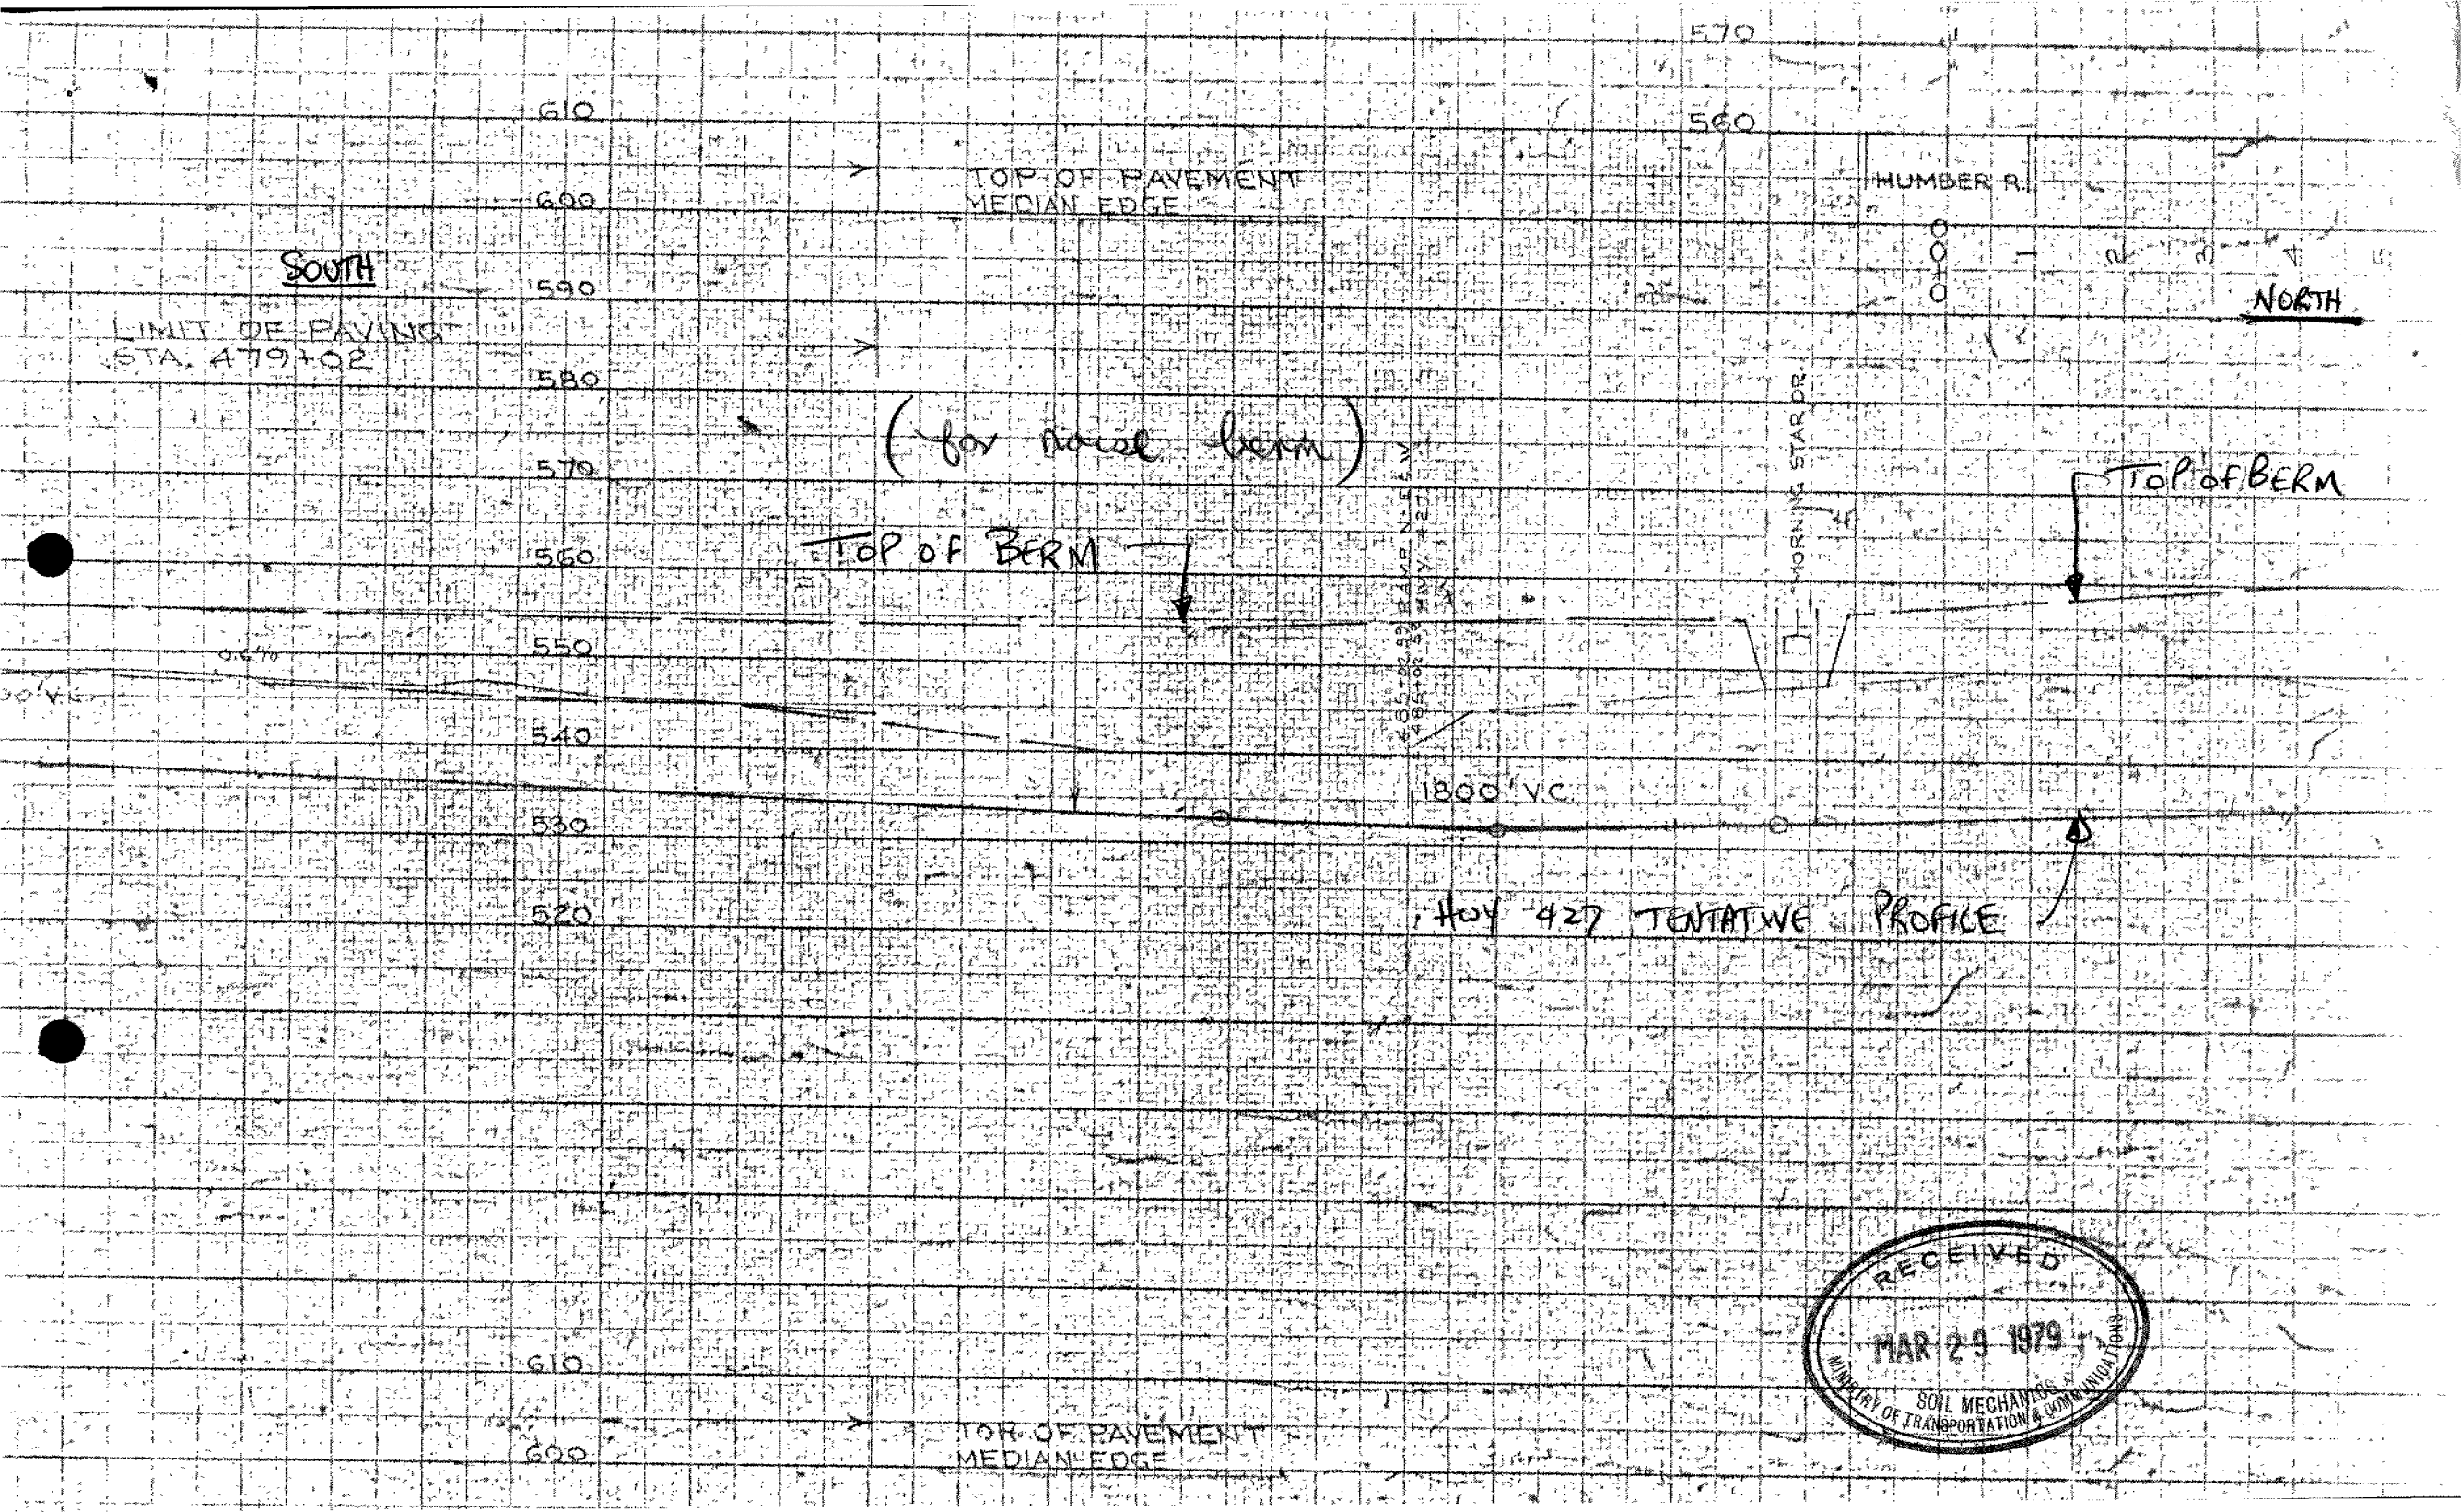 570
610
560
TOP OF PAVEMENT
MEDIAN EDGE
HUMBER R.
600
0+00
1
2
3
4
5
SOUTH
590
NORTH
LIMIT OF PAVING
STA. 479+02
580
(for noise berm)
MORNING STAR DR.
570
TOP OF BERM
TOP OF BERM
560
550
540
1800' V.C.
530
HWY 427 TENTATIVE PROFILE
520
RECEIVED
MAR 29 1979
SOIL MECHANICS
MINISTRY OF TRANSPORTATION & COMMUNICATIONS
610
TOP OF PAVEMENT
MEDIAN EDGE
600